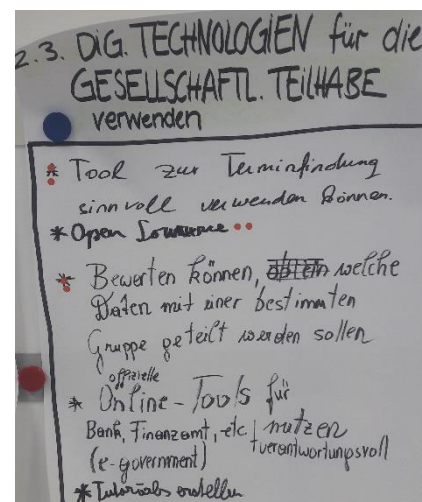 2.3. DiG. TECHNOLOGIEN für die
GESELLSCHAFTL. TEILHABE
verwenden
* Tool zur Terminfindung
sinnvoll verwenden können.
* Open
* Bewerten können, welche
Daten mit einer bestimmten
Gruppe geteilt werden sollen
offizielle
* Online-Tools für
Bank, Finanzamt, etc. nutzen
(e-government) + verantwortungsvoll
* Tutorials erstellen